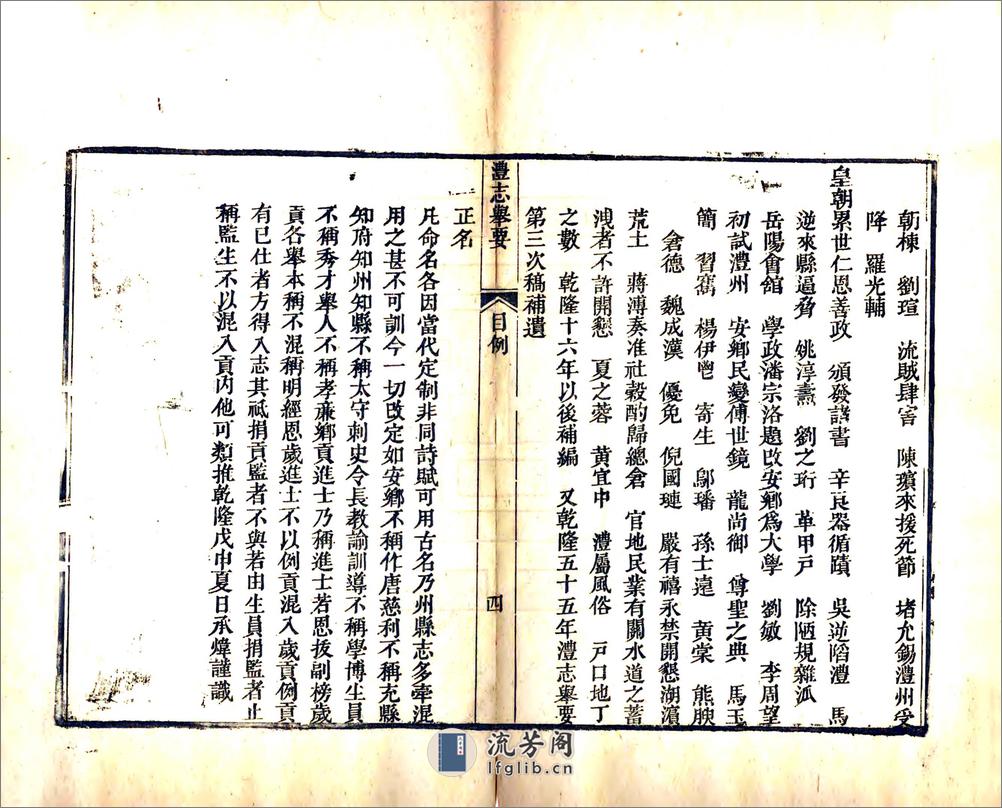 朝棟　劉瑄　流賊肆害　陳瓚來援死節　堵允錫澧州受
降　羅光輔
皇朝累世仁恩善政　頒發諸書　辛良器循蹟　吳逆陷澧　馬
逆來縣逼脅　姚淳燾　劉之珩　革甲戸　除陋規雜派
岳陽會館　學政潘宗洛題改安鄉爲大學　劉敏　李周望
初試澧州　安鄉民變傅世鏡　龍尚御　尊聖之典　馬玉
簡　習寯　楊伊鬯　寄生　鄔璠　孫士達　黃棠　熊腴
倉德　魏成漢　優免　倪國璉　嚴有禧永禁開懇湖濵
荒土　蔣溥奏准社穀酌歸總倉　官地民業有關水道之蓄
洩者不許開懇　夏之蓉　黃宜中　澧屬風俗　戸口地丁
之數　乾隆十六年以後補編　又乾隆五十五年澧志舉要
第三次稿補遺
澧志舉要
目例
四
正名
凡命名各因當代定制非同詩賦可用古名乃州縣志多牽混
用之甚不可訓今一切改定如安鄉不稱作唐慈利不稱充縣
知府知州知縣不稱太守刺史令長教諭訓導不稱學博生員
不稱秀才舉人不稱孝亷鄉貢進士乃稱進士若恩拔副榜歲
貢各舉本稱不混稱明經恩歲進士不以例貢混入歲貢例貢
有已仕者方得入志其祗捐貢監者不與若由生員捐監者止
稱監生不以混入貢内他可類推乾隆戊申夏日承煒謹識
流芳阁
lfglib.cn